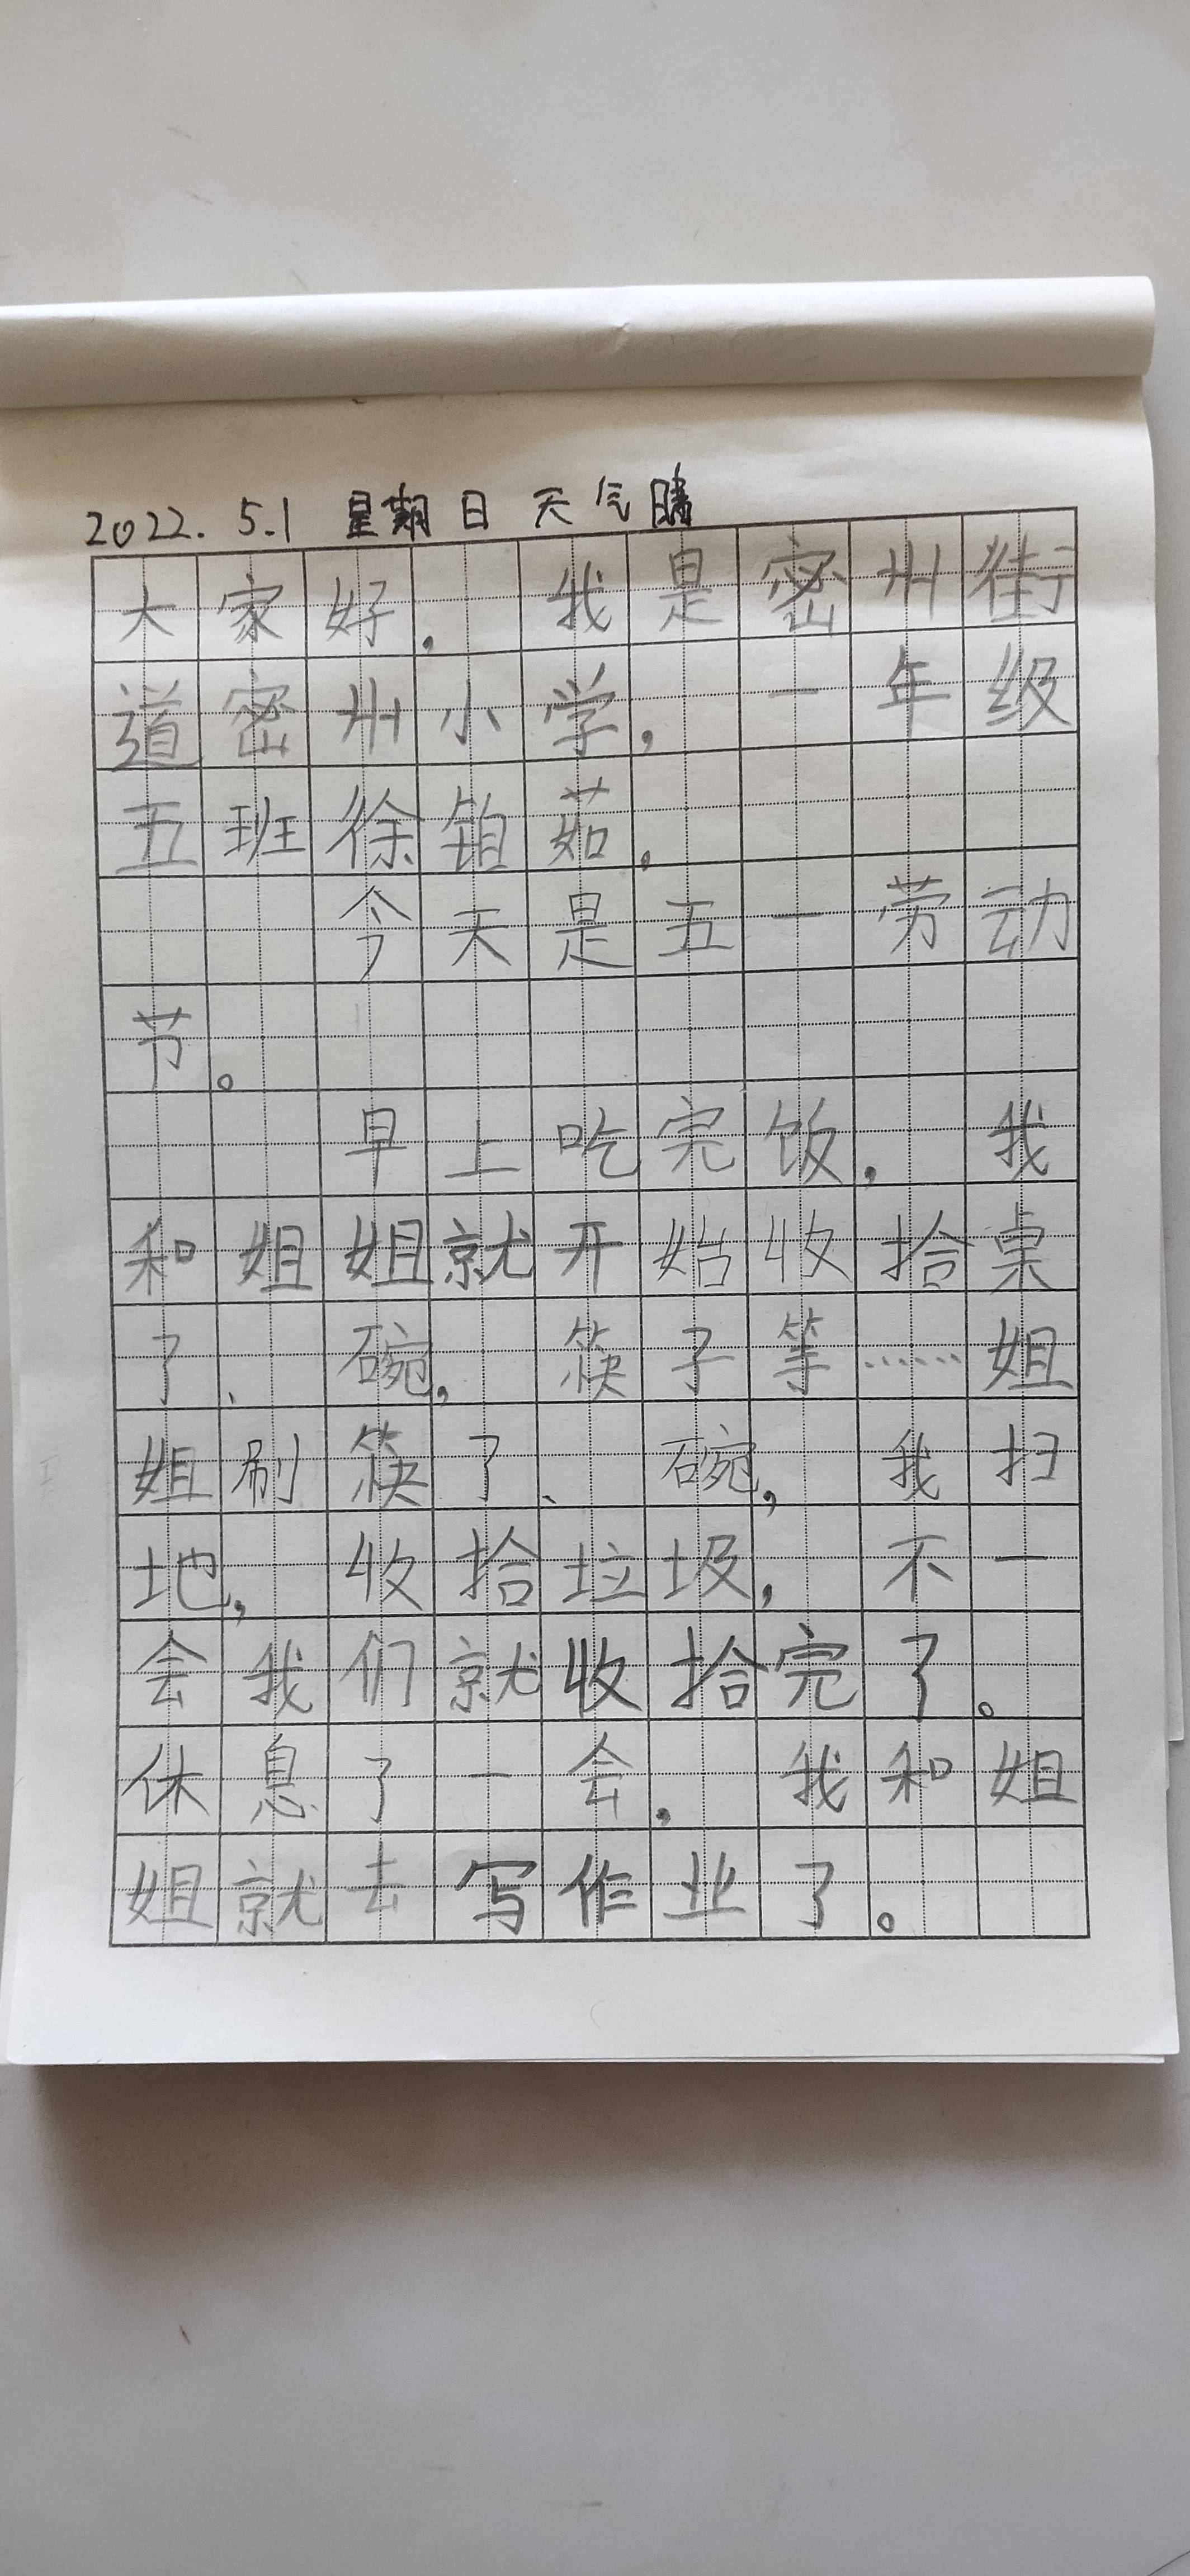 2022. 5.1 星期日 天气晴
大家好，我是密州街
道密州小学，一年级
五班徐铂茹，
今天是五一劳动
节。
早上吃完饭，我
和姐姐就开始收拾桌
了、碗，筷子等……姐
姐刷筷了、碗，我扫
地，收拾垃圾，不一
会我们就收拾完了。
休息了一会，我和姐
姐就去写作业了。